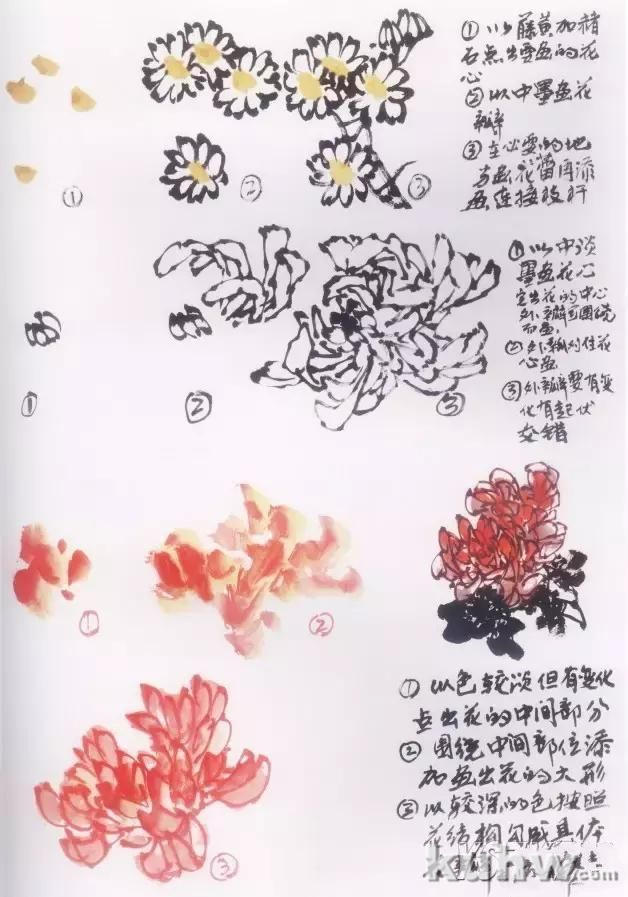 ① 以藤黄加赭
石点出要画的花
心
② 以中墨画花
瓣
③ 在必要的地
方画花蕾再添
画连接枝杆
① ② ③
① 以中淡
墨画花心
定出花的中心
外瓣可围绕
而画
② 外瓣对住花
心画
③ 外瓣要有变
化有起伏
交错
① ② ③
① ②
① 以色较淡但有变化
点出花的中间部分
② 围绕中间部位添
加画出花的大形
③ 以较深的色按照
花结构勾成具体
③